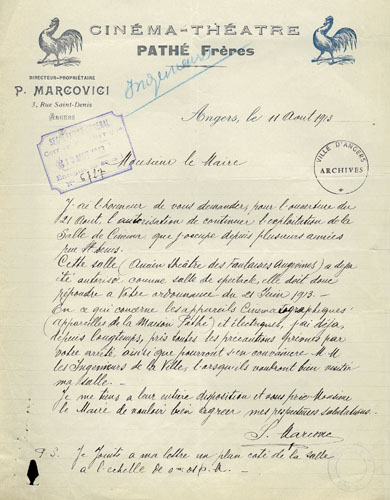 CINÉMA-THÉATRE
PATHÉ Frères
DIRECTEUR-PROPRIÉTAIRE
P. MARCOVICI
3, Rue Saint-Denis
ANGERS
Ingénieur
Angers, le 11 Aout 1913
VILLE D'ANGERS
ARCHIVES
Monsieur le Maire
J'ai l'honneur de vous demander, pour l'ouverture du
21 Aout, l'autorisation de continuer l'exploitation de la
Salle de Cinéma que j'occupe depuis plusieurs années
rue St Denis.
Cette salle (Ancien théâtre des Fantaisies Angevines) a déjà
été autorisé comme salle de spectacle, elle doit donc
répondre a votre ordonnance du 21 Juin 1913.
En ce qui concerne les appareils Cinematographiques
(appareilles de la Maison Pathé) et électriques, j'ai déja,
depuis longtemps, pris toutes les precautions prevues par
votre arreté, ainsi que pourront s'en convaincre M.M
les Ingenieurs de la Ville, lorsqu'ils voudront bien visiter
ma salle.
Je me tiens a leur entière disposition et vous prie Monsieur
le Maire de vouloir bien agréer mes respectueuses salutations.
P. Marcovici
P.S. Je Joints a ma lettre un plan coté de la salle
a l'échelle de